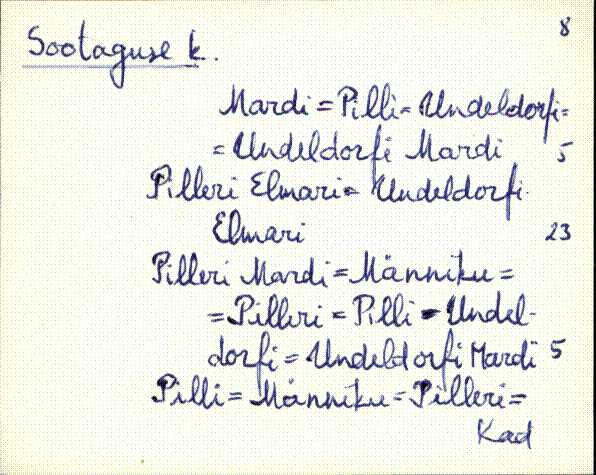 8
Sootaguse k.
Mardi = Pilli = Undeldorfi =
= Undeldorfi Mardi 5
Pilleri Elmari = Undeldorfi
Elmari 23
Pilleri Mardi = Männiku =
= Pilleri = Pilli = Undel-
dorfi = Undeldorfi Mardi 5
Pilli = Männiku = Pilleri =
Kad